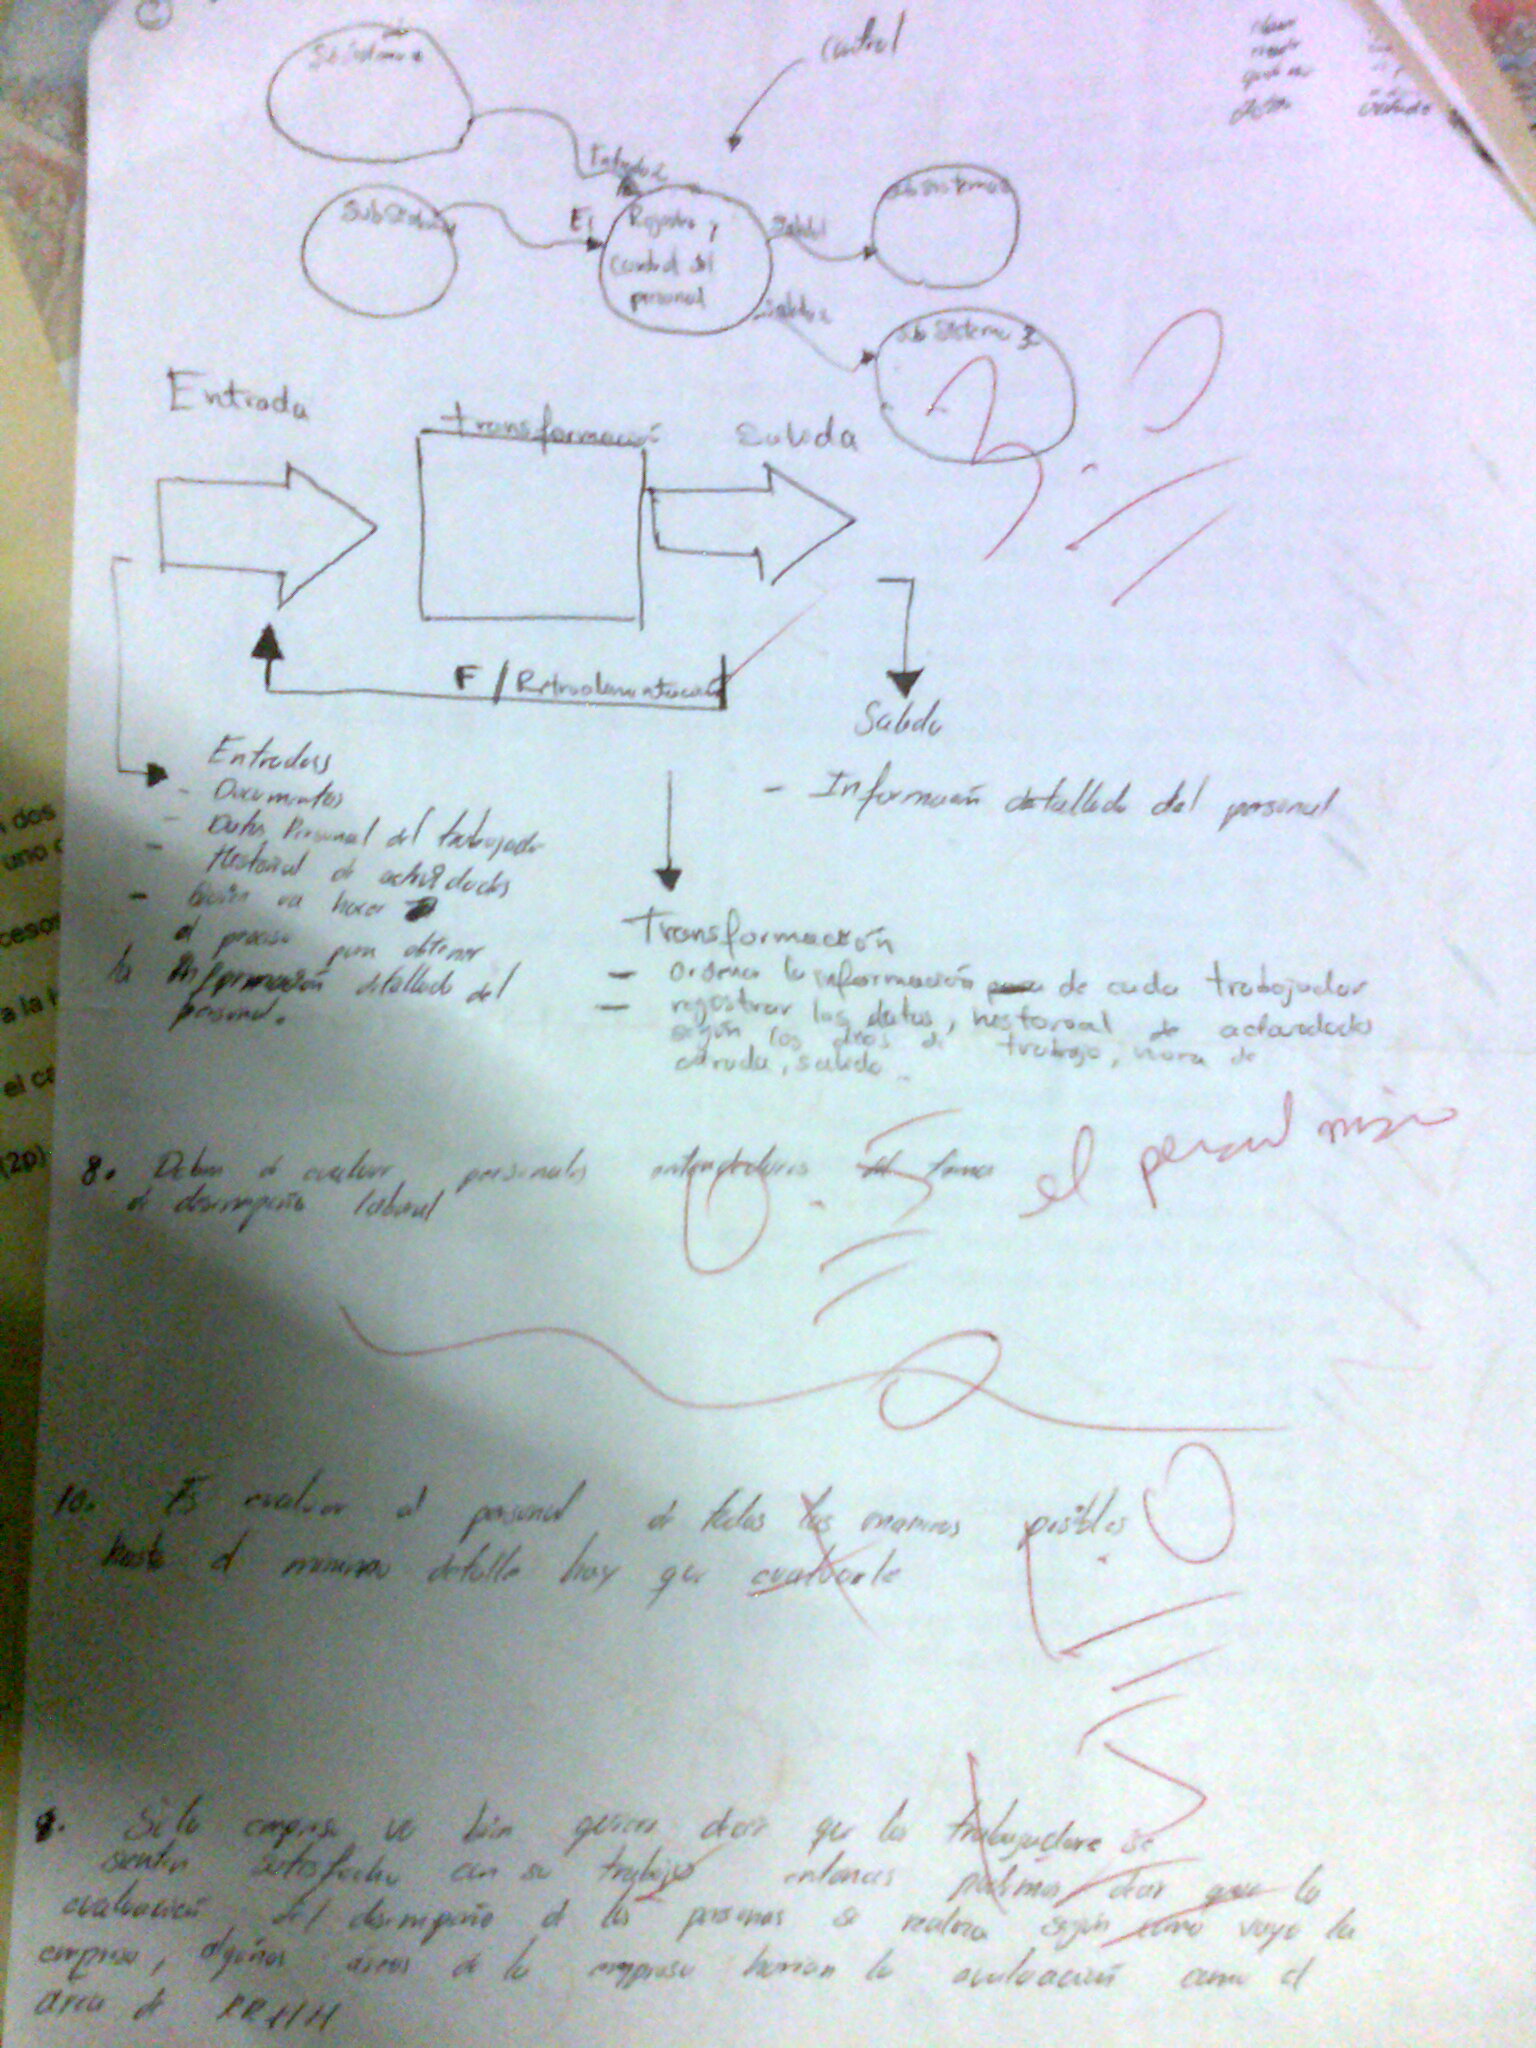 control
Sub Sistema
Entradas
Sub Sistema
E1
Registro y
control del
personal
Salida
Sub Sistema
Salidas
Sub Sistema 3
Entrada
transformación
Salida
F / Retroalimentación
Salida
- Información detallada del personal
Entradas
- Documentos
- Datos Personal del trabajador
- Historial de actividades
- Quien va hacer
el proceso para obtener
la información detallada del
personal.
Transformación
- Ordena la información de cada trabajador
- registrar los datos, historial de actividades
según los dias de trabajo, hora de
entrada, salida
8. Deben de evaluar personales
de desempeño laboral
el personal mismo
10. Es evaluar al personal de todas las maneras posibles
hasta el minimo detalle hay que evaluarle
9. Si la empresa va bien quiere decir que los trabajadores se
sienten satisfecho con su trabajo entonces podemos decir que la
evaluación del desempeño de las personas se realiza según como vaya la
empresa, algunas áreas de la empresa harian la evaluación como el
área de RRHH
(2p)
el ca
a la
cesos
uno
dos